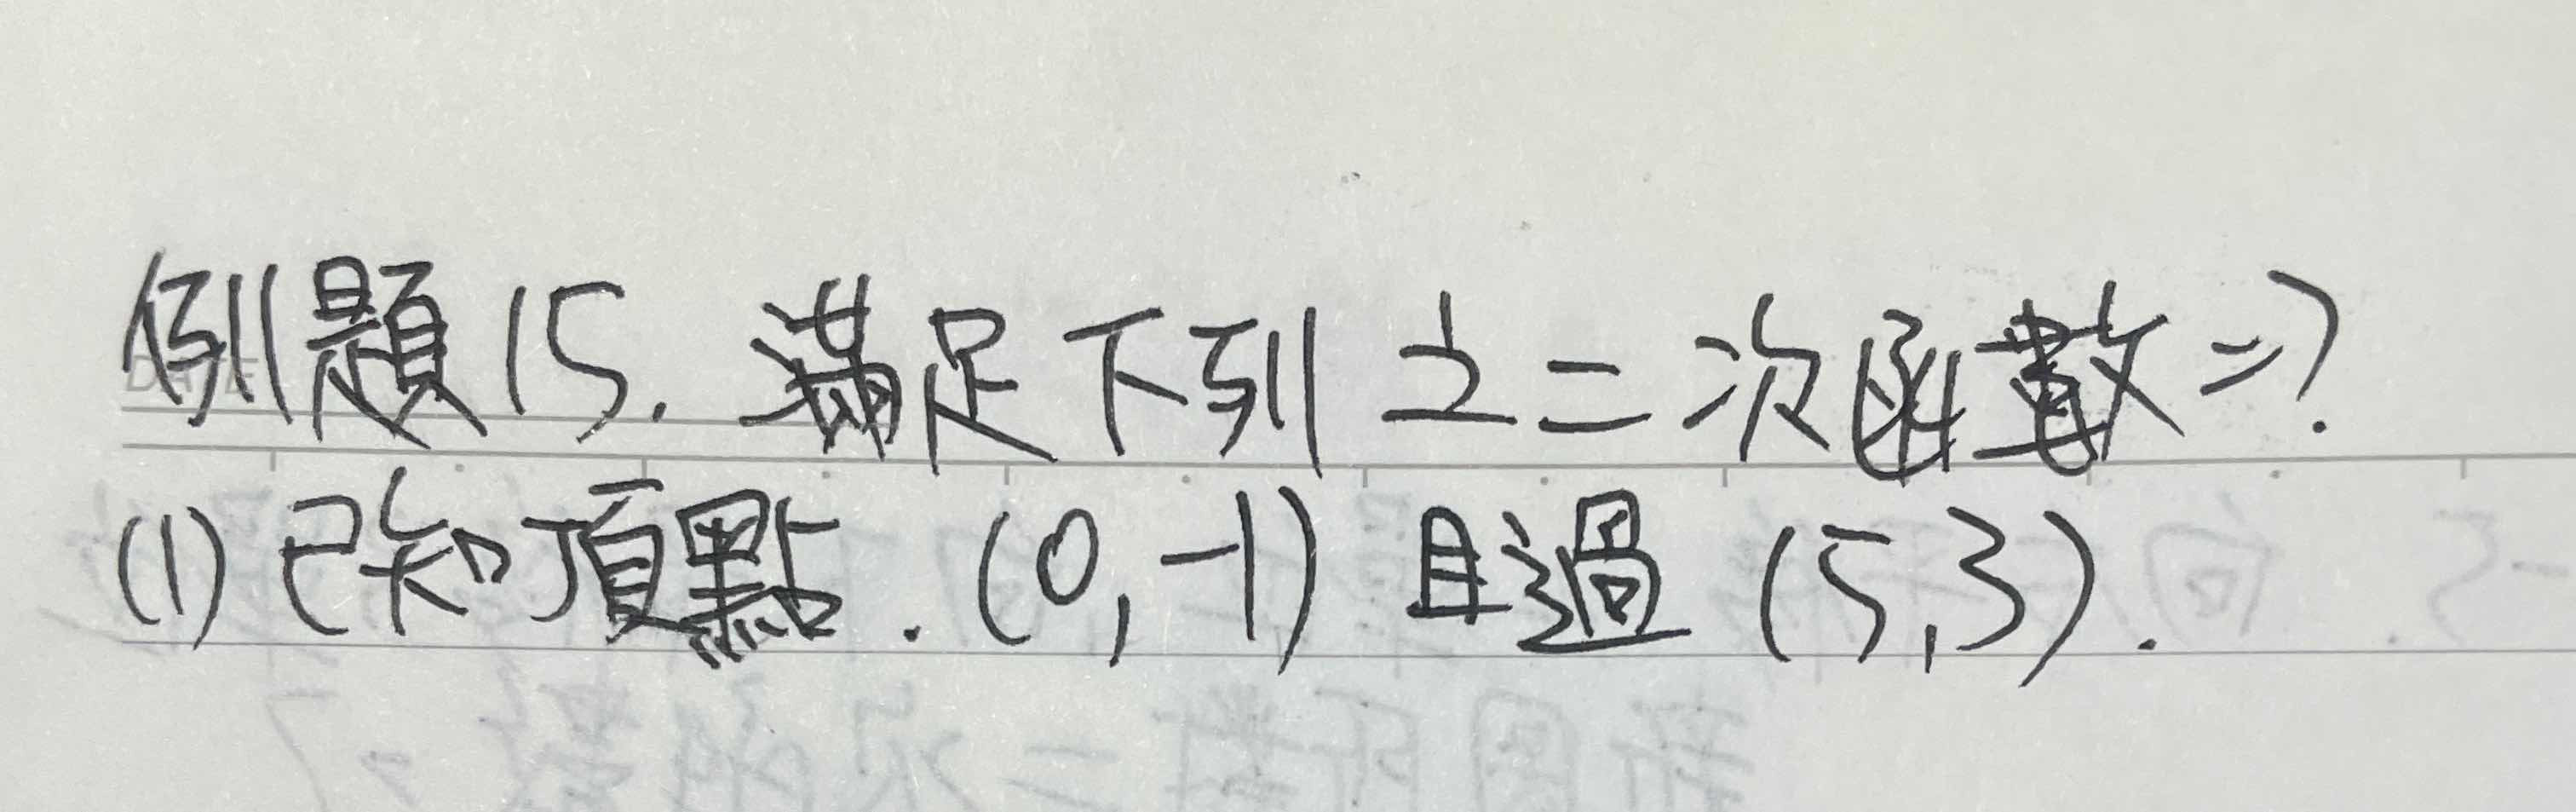 例題15. 滿足下列之二次函數=?
(1) 已知頂點.(0,-1) 且過 (5,3).